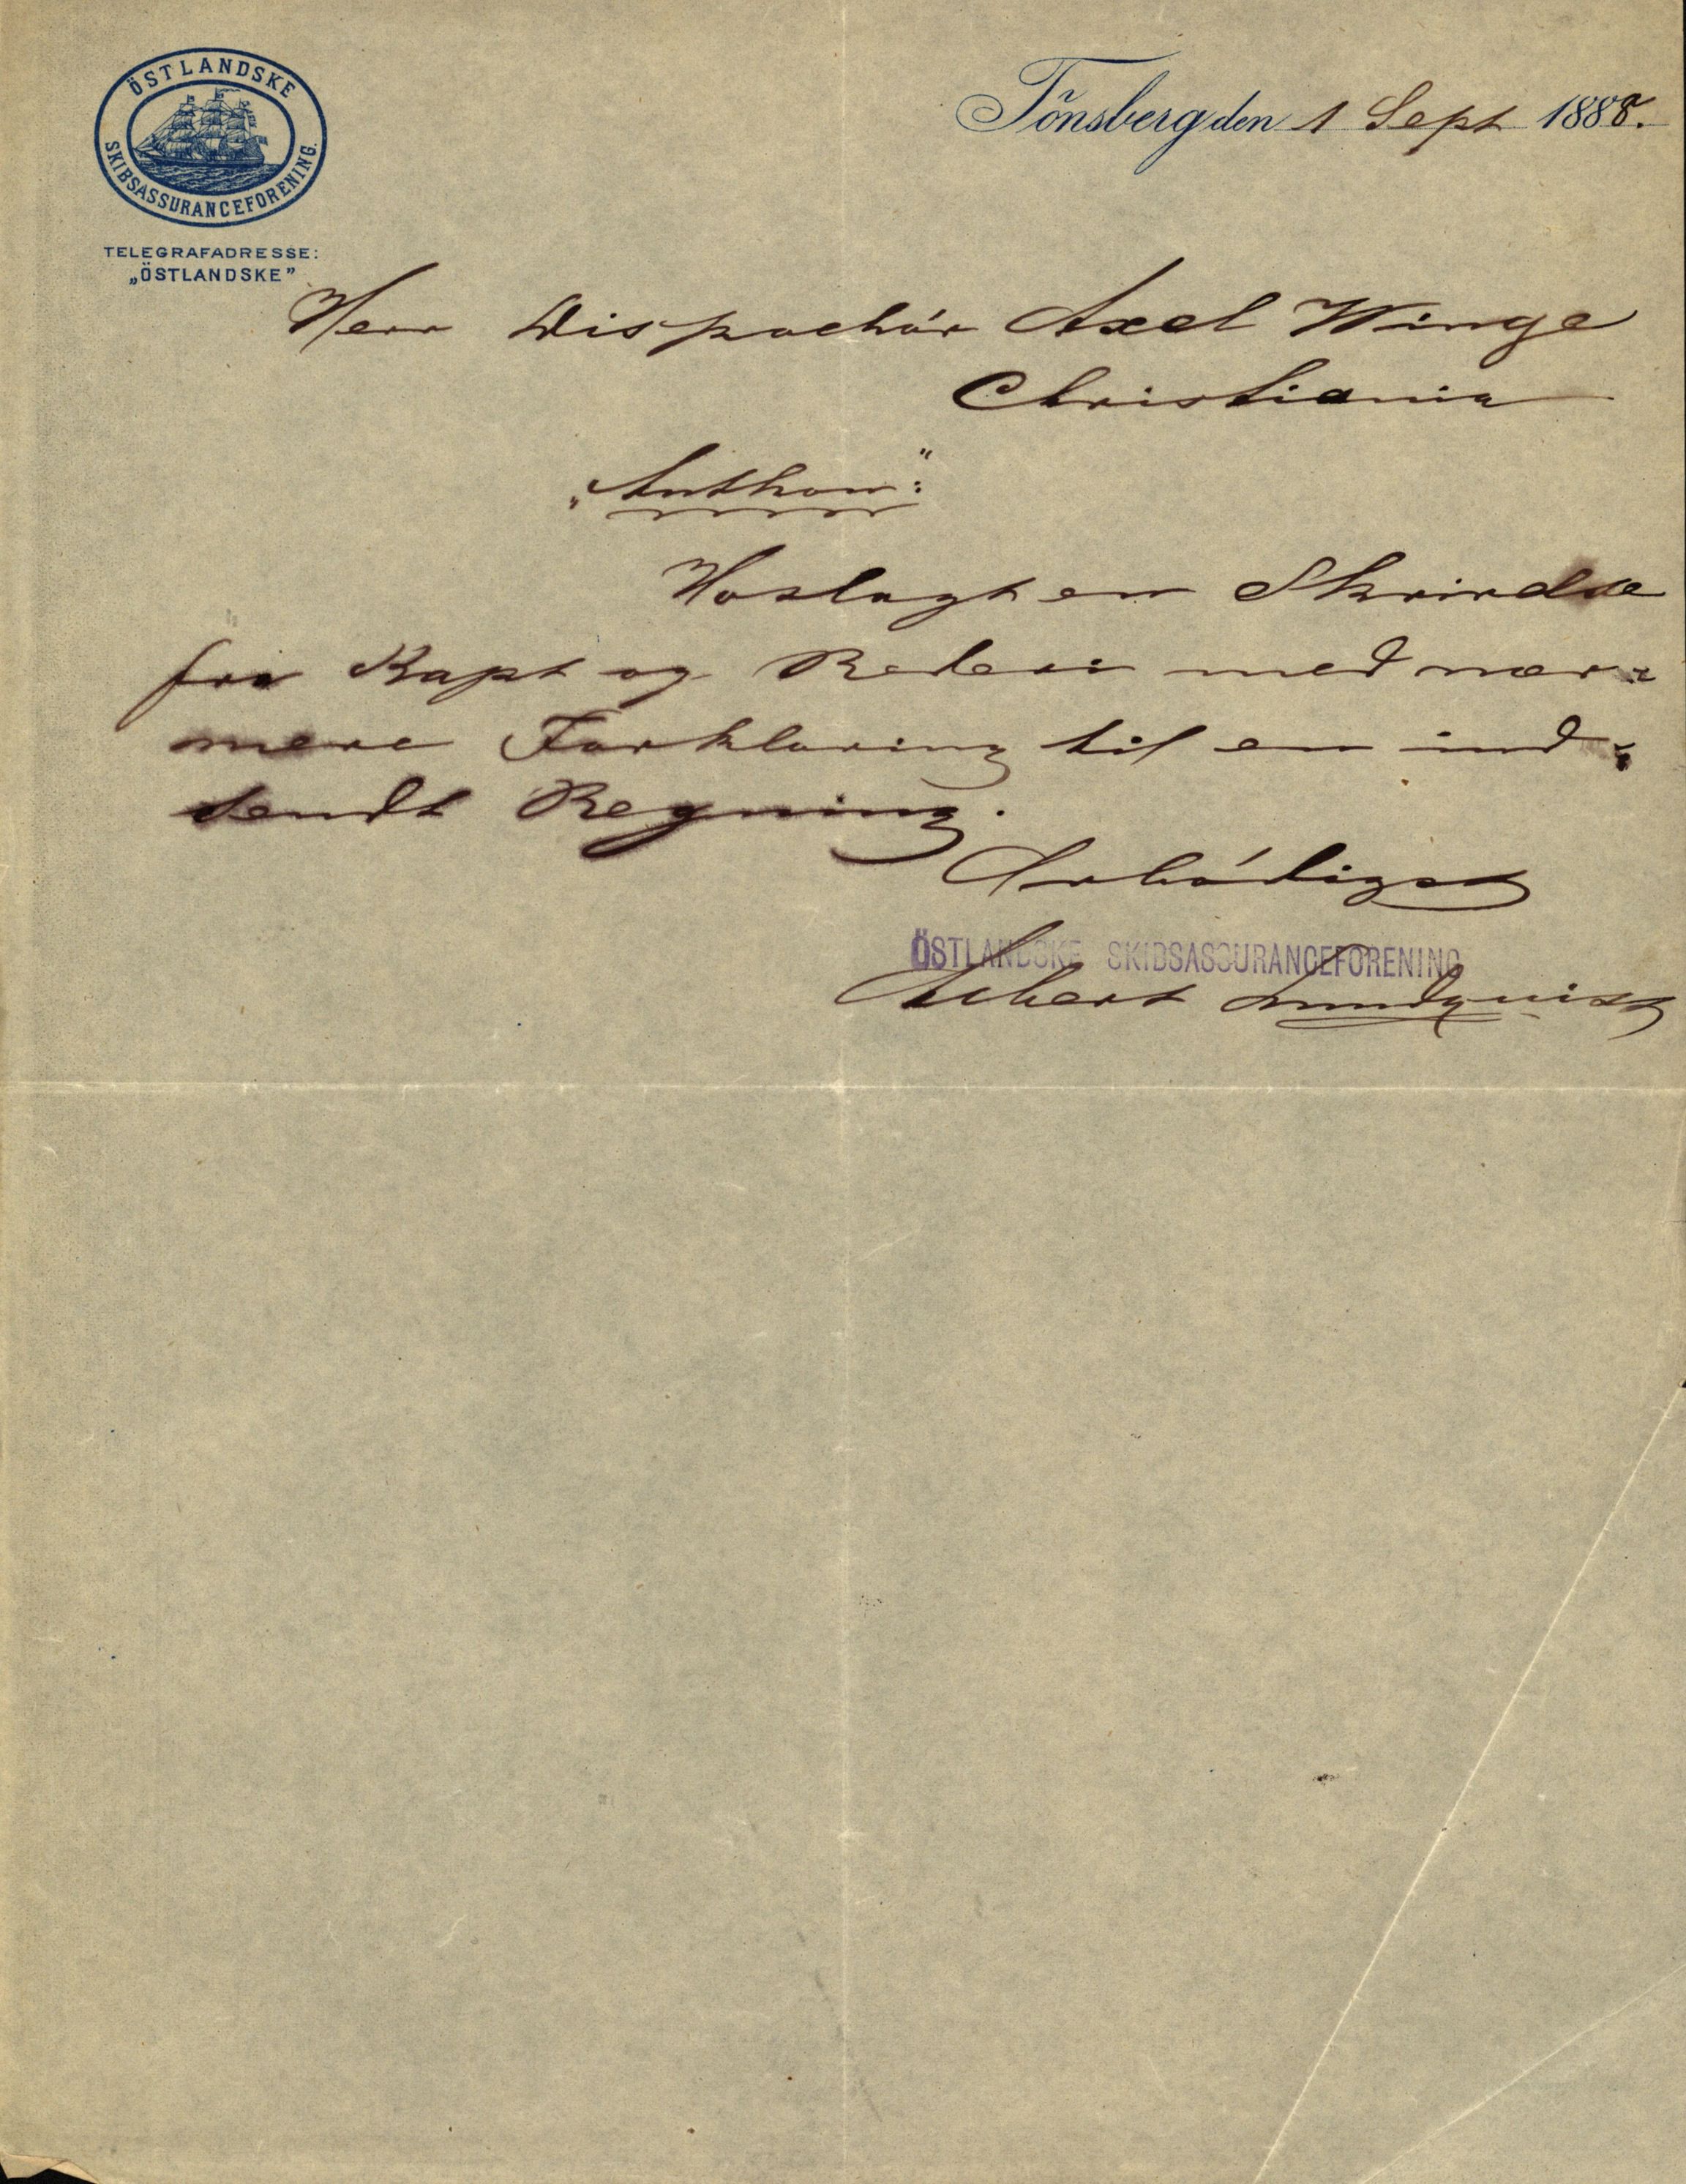 ÖSTLANDSKE
SKIBSASSURANCEFORENING.
TELEGRAFADRESSE:
„ÖSTLANDSKE”
Tönsberg den 1 Sept 1888.
Herr Dispachör Axel Winge
Christiania
„Anthon":
Hoslagt en Skrivelse
fra Kapt og Rederi med nær-
mere Forklaring til en ind-
sendt Regning.
Ærbödigst
ÖSTLANDSKE SKIBSASSURANCEFORENING
Lundquist